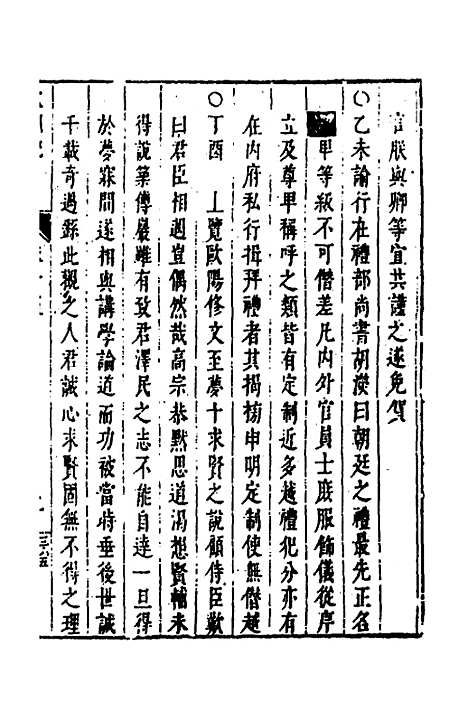 言朕與卿等宜共謹之遂免賀
○乙未諭行在禮部尚書胡濙曰朝廷之禮最先正名
卑等級不可僣差凡內外官員士庶服飾儀從序
立及尊卑稱呼之類皆有定制近多越禮犯分亦有
在內府私行揖拜禮者其揭榜申明定制使無僣越
○丁酉　上覽歐陽修文至夢卜求賢之說顧侍臣歎
曰君臣相遇豈偶然哉高宗恭默思道渴想賢輔未
得說築傅巖雖有致君澤民之志不能自達一旦得
於夢寐間遂相與講學論道而功被當時垂後世誠
千載奇遇繇此觀之人君誠心求賢固無不得之理